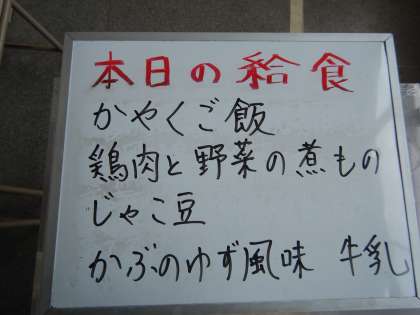 本日の給食
かやくご飯
鶏肉と野菜の煮もの
じゃこ豆
かぶのゆず風味 牛乳